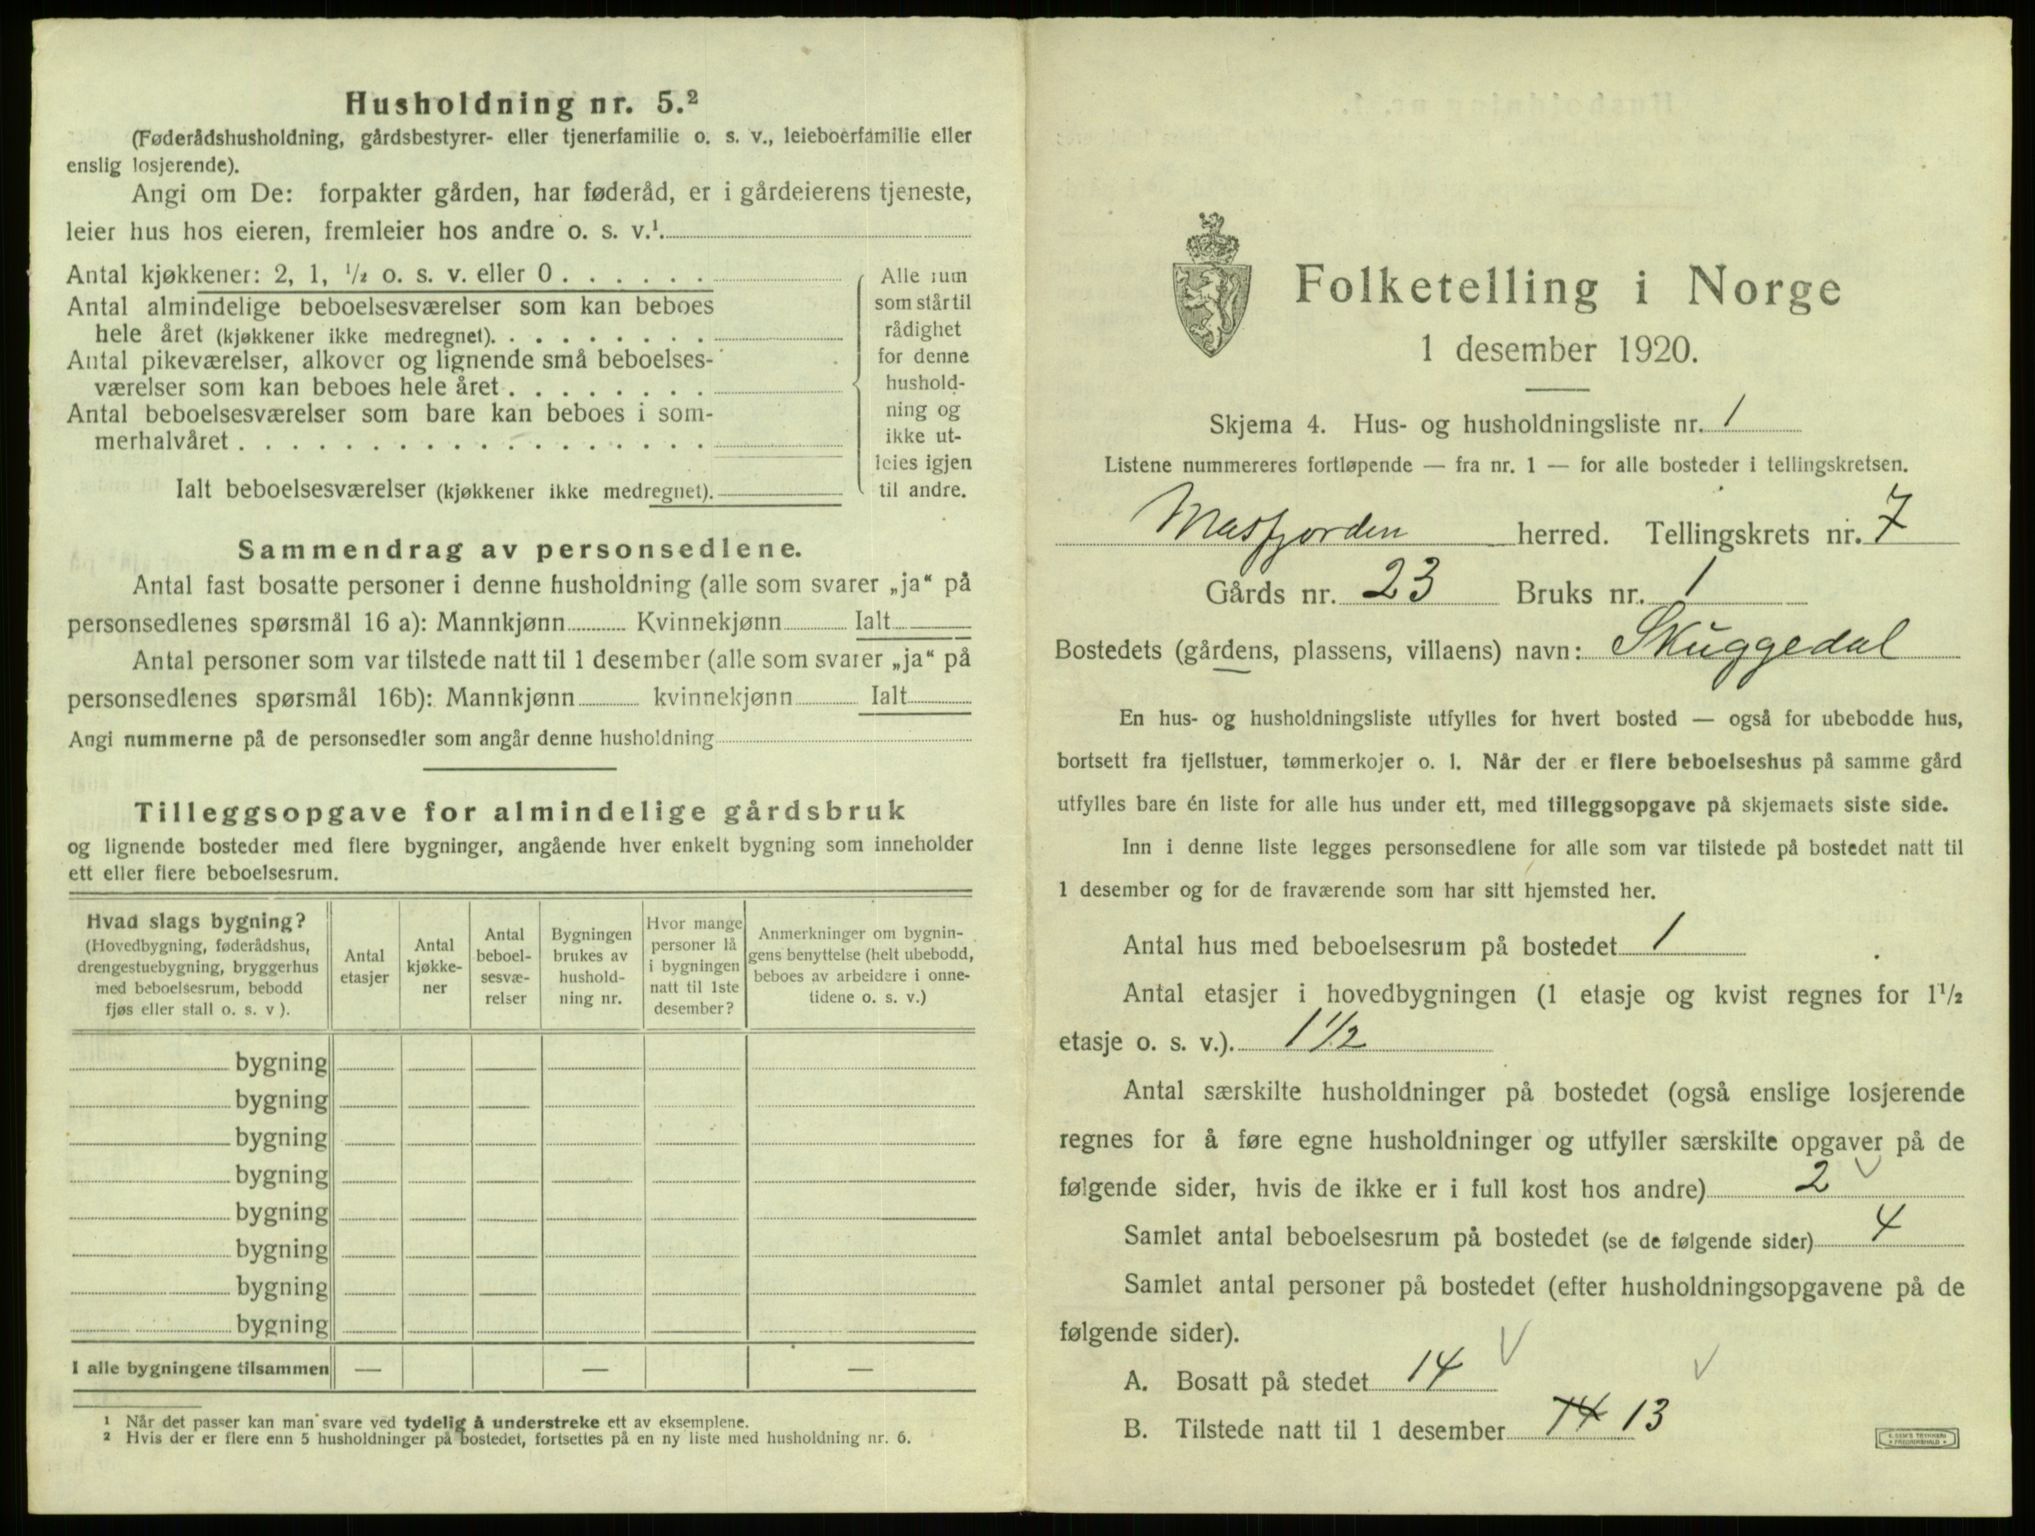 Husholdning nr. 5.²
(Føderådshusholdning, gårdsbestyrer- eller tjenerfamilie o. s. v., leieboerfamilie eller
enslig losjerende).
Angi om De: forpakter gården, har føderåd, er i gårdeierens tjeneste,
leier hus hos eieren, fremleier hos andre o. s. v.¹
Antal kjøkkener: 2, 1, ½ o. s. v. eller 0 . . . . . .
Antal almindelige beboelsesværelser som kan beboes
hele året (kjøkkener ikke medregnet). . . . . . . . .
Antal pikeværelser, alkover og lignende små beboelses-
værelser som kan beboes hele året . . . . . . . .
Antal beboelsesværelser som bare kan beboes i som-
merhalvåret . . . . . . . . . . . . . . . . . .
Ialt beboelsesværelser (kjøkkener ikke medregnet).
Alle rum
som står til
rådighet
for denne
hushold-
ning og
ikke ut-
leies igjen
til andre.
Sammendrag av personsedlene.
Antal fast bosatte personer i denne husholdning (alle som svarer „ja“ på
personsedlenes spørsmål 16 a): Mannkjønn Kvinnekjønn Ialt
Antal personer som var tilstede natt til 1 desember (alle som svarer „ja“ på
personsedlenes spørsmål 16b): Mannkjønn kvinnekjønn Ialt
Angi nummerne på de personsedler som angår denne husholdning
Tilleggsopgave for almindelige gårdsbruk
og lignende bosteder med flere bygninger, angående hver enkelt bygning som inneholder
ett eller flere beboelsesrum.
Hvad slags bygning?
(Hovedbygning, føderådshus,
drengestuebygning, bryggerhus
med beboelsesrum, bebodd
fjøs eller stall o. s. v ).
Antal
etasjer
Antal
kjøkke-
ner
Antal
beboel-
sesvæ-
relser
Bygningen
brukes av
hushold-
ning nr.
Hvor mange
personer lå
i bygningen
natt til 1ste
desember?
Anmerkninger om bygnin-
gens benyttelse (helt ubebodd,
beboes av arbeidere i onne-
tidene o. s. v.)
bygning
bygning
bygning
bygning
bygning
bygning
bygning
bygning
I alle bygningene tilsammen — — —
¹ Når det passer kan man svare ved tydelig å understreke ett av eksemplene.
² Hvis der er flere enn 5 husholdninger på bostedet, fortsettes på en ny liste med husholdning nr. 6.
Folketelling i Norge
1 desember 1920.
Skjema 4. Hus- og husholdningsliste nr. 1
Listene nummereres fortløpende — fra nr. 1 — for alle bosteder i tellingskretsen.
Masfjorden herred. Tellingskrets nr. 7
Gårds nr. 23 Bruks nr. 1
Bostedets (gårdens, plassens, villaens) navn: Skuggedal
En hus- og husholdningsliste utfylles for hvert bosted — også for ubebodde hus,
bortsett fra fjellstuer, tømmerkojer o. l. Når der er flere beboelseshus på samme gård
utfylles bare én liste for alle hus under ett, med tilleggsopgave på skjemaets siste side.
Inn i denne liste legges personsedlene for alle som var tilstede på bostedet natt til
1 desember og for de fraværende som har sitt hjemsted her.
Antal hus med beboelsesrum på bostedet 1
Antal etasjer i hovedbygningen (1 etasje og kvist regnes for 1½
etasje o. s. v.). 1½
Antal særskilte husholdninger på bostedet (også enslige losjerende
regnes for å føre egne husholdninger og utfyller særskilte opgaver på de
følgende sider, hvis de ikke er i full kost hos andre) 2
Samlet antal beboelsesrum på bostedet (se de følgende sider) 4
Samlet antal personer på bostedet (efter husholdningsopgavene på de
følgende sider).
A. Bosatt på stedet 14
B. Tilstede natt til 1 desember 14 13